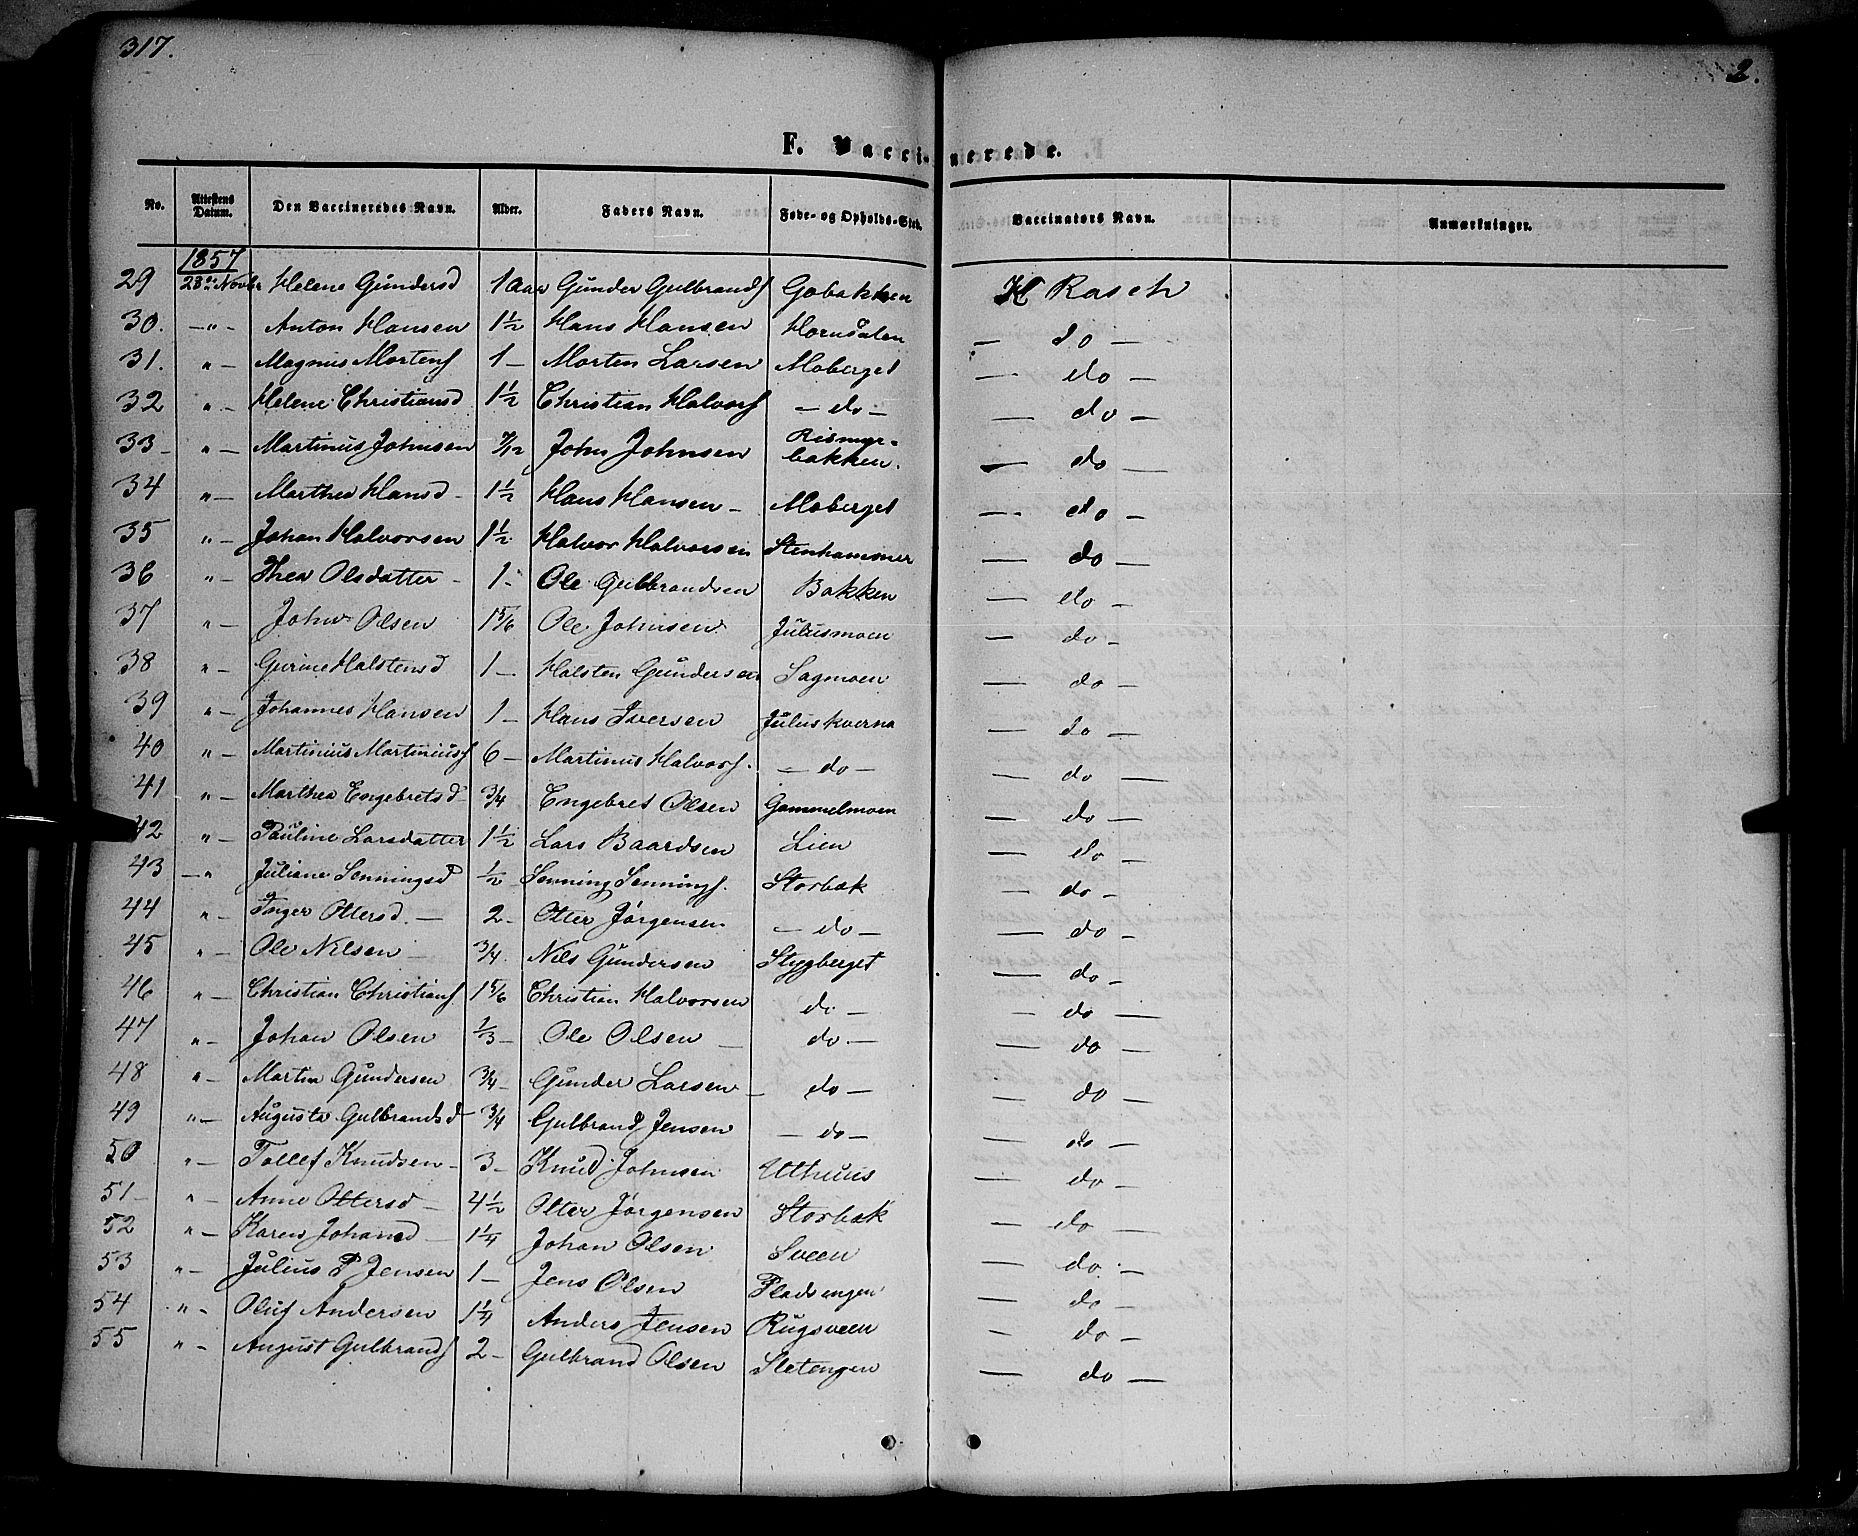 317.
2.
F. Vaccinerede.
No. Attestens Datum. Den Vaccineredes Navn. Alder. Faders Navn. Føde- og Opholds-Sted. Vaccinators Navn. Anmærkninger.
1857
29 23de Novbr Helene Gundersd 1 aar Gunder Gulbrands Gobakken H Rasch
30. —"- Anton Hansen 1½ Hans Hansen Hornsalen — do —
31. " — Magnus Mortens 1 — Morten Larsen Moberget — do —
32 " — Helene Christiansd 1½ Christian Halvors — do — — do —
33 — " — Martinus Johnsen 7/12 John Johnsen Rismyr-
bakken. — do —
34 " — Marthea Hansd — 1½ Hans Hansen — Moberget — do —
35 " — Johan Halvorsen 1½ Halvor Halvorsen Stenhammer — do —
36 " — Thea Olsdatter — 1 - Ole Gulbrandsen Bakken — do —
37 " — John Olsen 1 5/6 Ole Johnsen Julusmoen — do —
38 " — Gurine Halstensd 1 — Halsten Gundersen Sagmoen — do —
39 " — Johannes Hansen 1 — Hans Iversen Juluskverna — do —
40 " — Martinius Martinius 6 — Martinus Halvors. — do — — do —
41 " — Marthea Engebretsd 3/4 Engebret Olsen Gammelmoen — do —
42 " — Pauline Larsdatter 1½ Lars Baardsen Lien — do —
43 — " Juliane Sonningsd ½ Sonning Sonnings. Storbæk — do —
44 " — Inger Ottersd. — 2 — Otter Jørgensen — do — — do —
45 " — Ole Nilsen — 3/4. Nils Gundersen Stygberget — do —
46 " — Christian Christians 1 5/6 Christian Halvorsen do — — do —
47 " — Johan Olsen 1/3 — Ole Olsen — do — — do —
48 " — Martin Gundersen 3/4 — Gunder Larsen — do — — do —
49 " — Augusta Gulbrandsd 3/4 Gulbrand Jensen — do — — do —
50 " — Tollef Knudsen — 3 — Knud Johnsen Uthuus — do —
51 — " — Anne Ottersd — 4½ Otter Jørgensen Storbæk — do —
52 " — Karen Johansd — 1¼ Johan Olsen Sveen — do —
53 " — Julius P Jensen 1 — Jens Olsen Pladsengen — do —
54 " — Oluf Andersen 1¼ Anders Jensen Rugsveen — do —
55 " — August Gulbrands 2 — Gulbrand Olsen Sletengen — do —